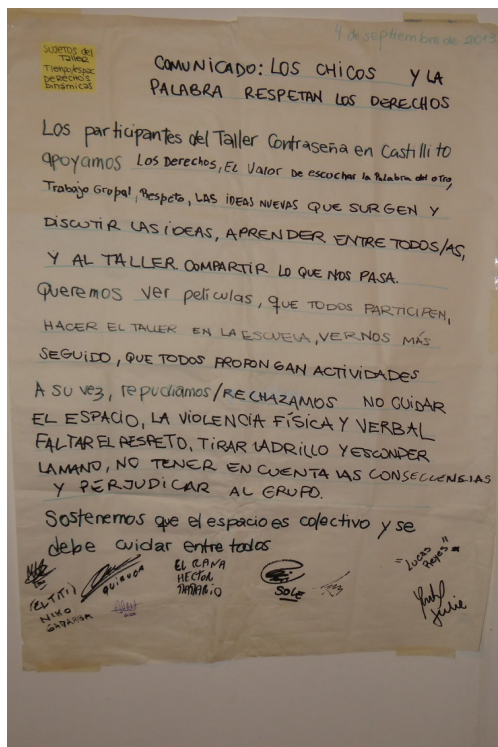 4 de septiembre de 2013
SUJETOS del
Taller
Tiempo/espac
DERECHOS
Dinámicas
COMUNICADO: LOS CHICOS Y LA
PALABRA RESPETAN LOS DERECHOS
Los participantes del Taller Contraseña en Castillito
apoyamos Los Derechos, El Valor De escuchar la Palabra del otro,
Trabajo Grupal, Respeto, LAS IDEAS NUEVAS QUE SURGEN Y
DISCUTIR LAS IDEAS, APRENDER ENTRE TODOS/AS,
Y AL TALLER. COMPARTIR LO QUE NOS PASA.
Queremos ver películas, QUE TODOS PARTICIPEN,
HACER EL TALLER EN LA ESCUELA, VERNOS MÁS
SEGUIDO, QUE TODOS PROPONGAN ACTIVIDADES
A su vez, repudiamos/RECHAZAMOS NO CUIDAR
EL ESPACIO, LA VIOLENCIA FÍSICA Y VERBAL
FALTAR EL RESPETO, TIRAR LADRILLO Y ESCONDER
LA MANO, NO TENER EN CUENTA LAS CONSECUENSIAS
Y PERJUDICAR AL GRUPO.
Sostenemos que el espacio es colectivo y se
debe cuidar entre todos
(EL TITI)
NIKO
QUIROGA
EL RANA
HECTOR
SOLE
"LUCAS
Reyes"
Julie